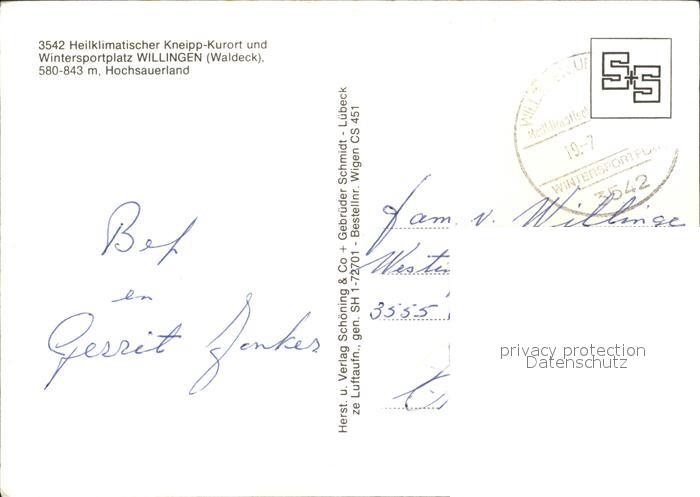 3542 Heilklimatischer Kneipp-Kurort und
Wintersportplatz WILLINGEN (Waldeck),
580-843 m, Hochsauerland
Herst. u. Verlag Schöning & Co + Gebrüder Schmidt - Lübeck
ze Luftaufn., gen. SH 1-72701 - Bestellnr. Wigen CS 451
S+S
19.-7
WINTERSPORTPLA
3542
Bep
en
Gerrit Jonker
Fam. v. Willinge
3555
privacy protection
Datenschutz